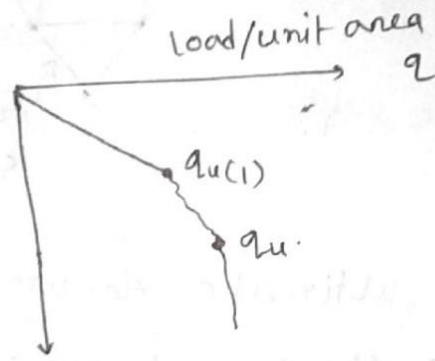 load/unit area
q
qu(1)
qu.